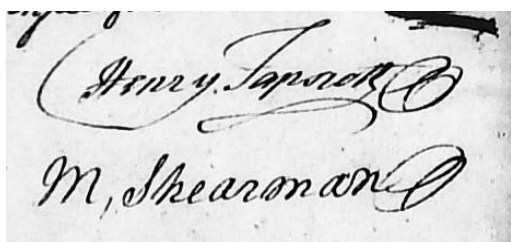 Henry Tapscott
M, Shearman